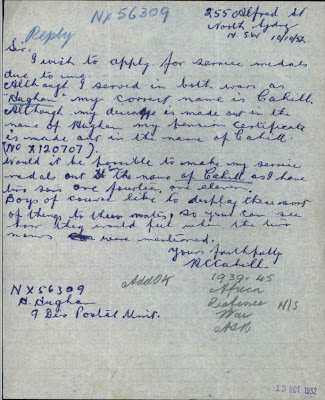 NX56309
255 Alfred St
Reply
North Sydney
N.S.W. 10/10/52
Sir.
I wish to apply for service medals
due to me.
Although I served in both wars as
"Hughan" my correct name is Cahill.
Although my discharge is made out in the
name of Hughan my pension certificate
is made out in the name of Cahill
(No X120707).
Would it be possible to make my service
medals out in the name of Cahill as I have
two sons one fourteen, one eleven.
Boys of course like to display these sort
of things to their mates, so you can see
how they would feel when the two
names were mentioned.
Yours faithfully
Cahill.
Add OK
1939-45
Africa
Defence
War
ASM
H/S
NX56309
Hughan
9 Div Postal Unit.
13 OCT 1952